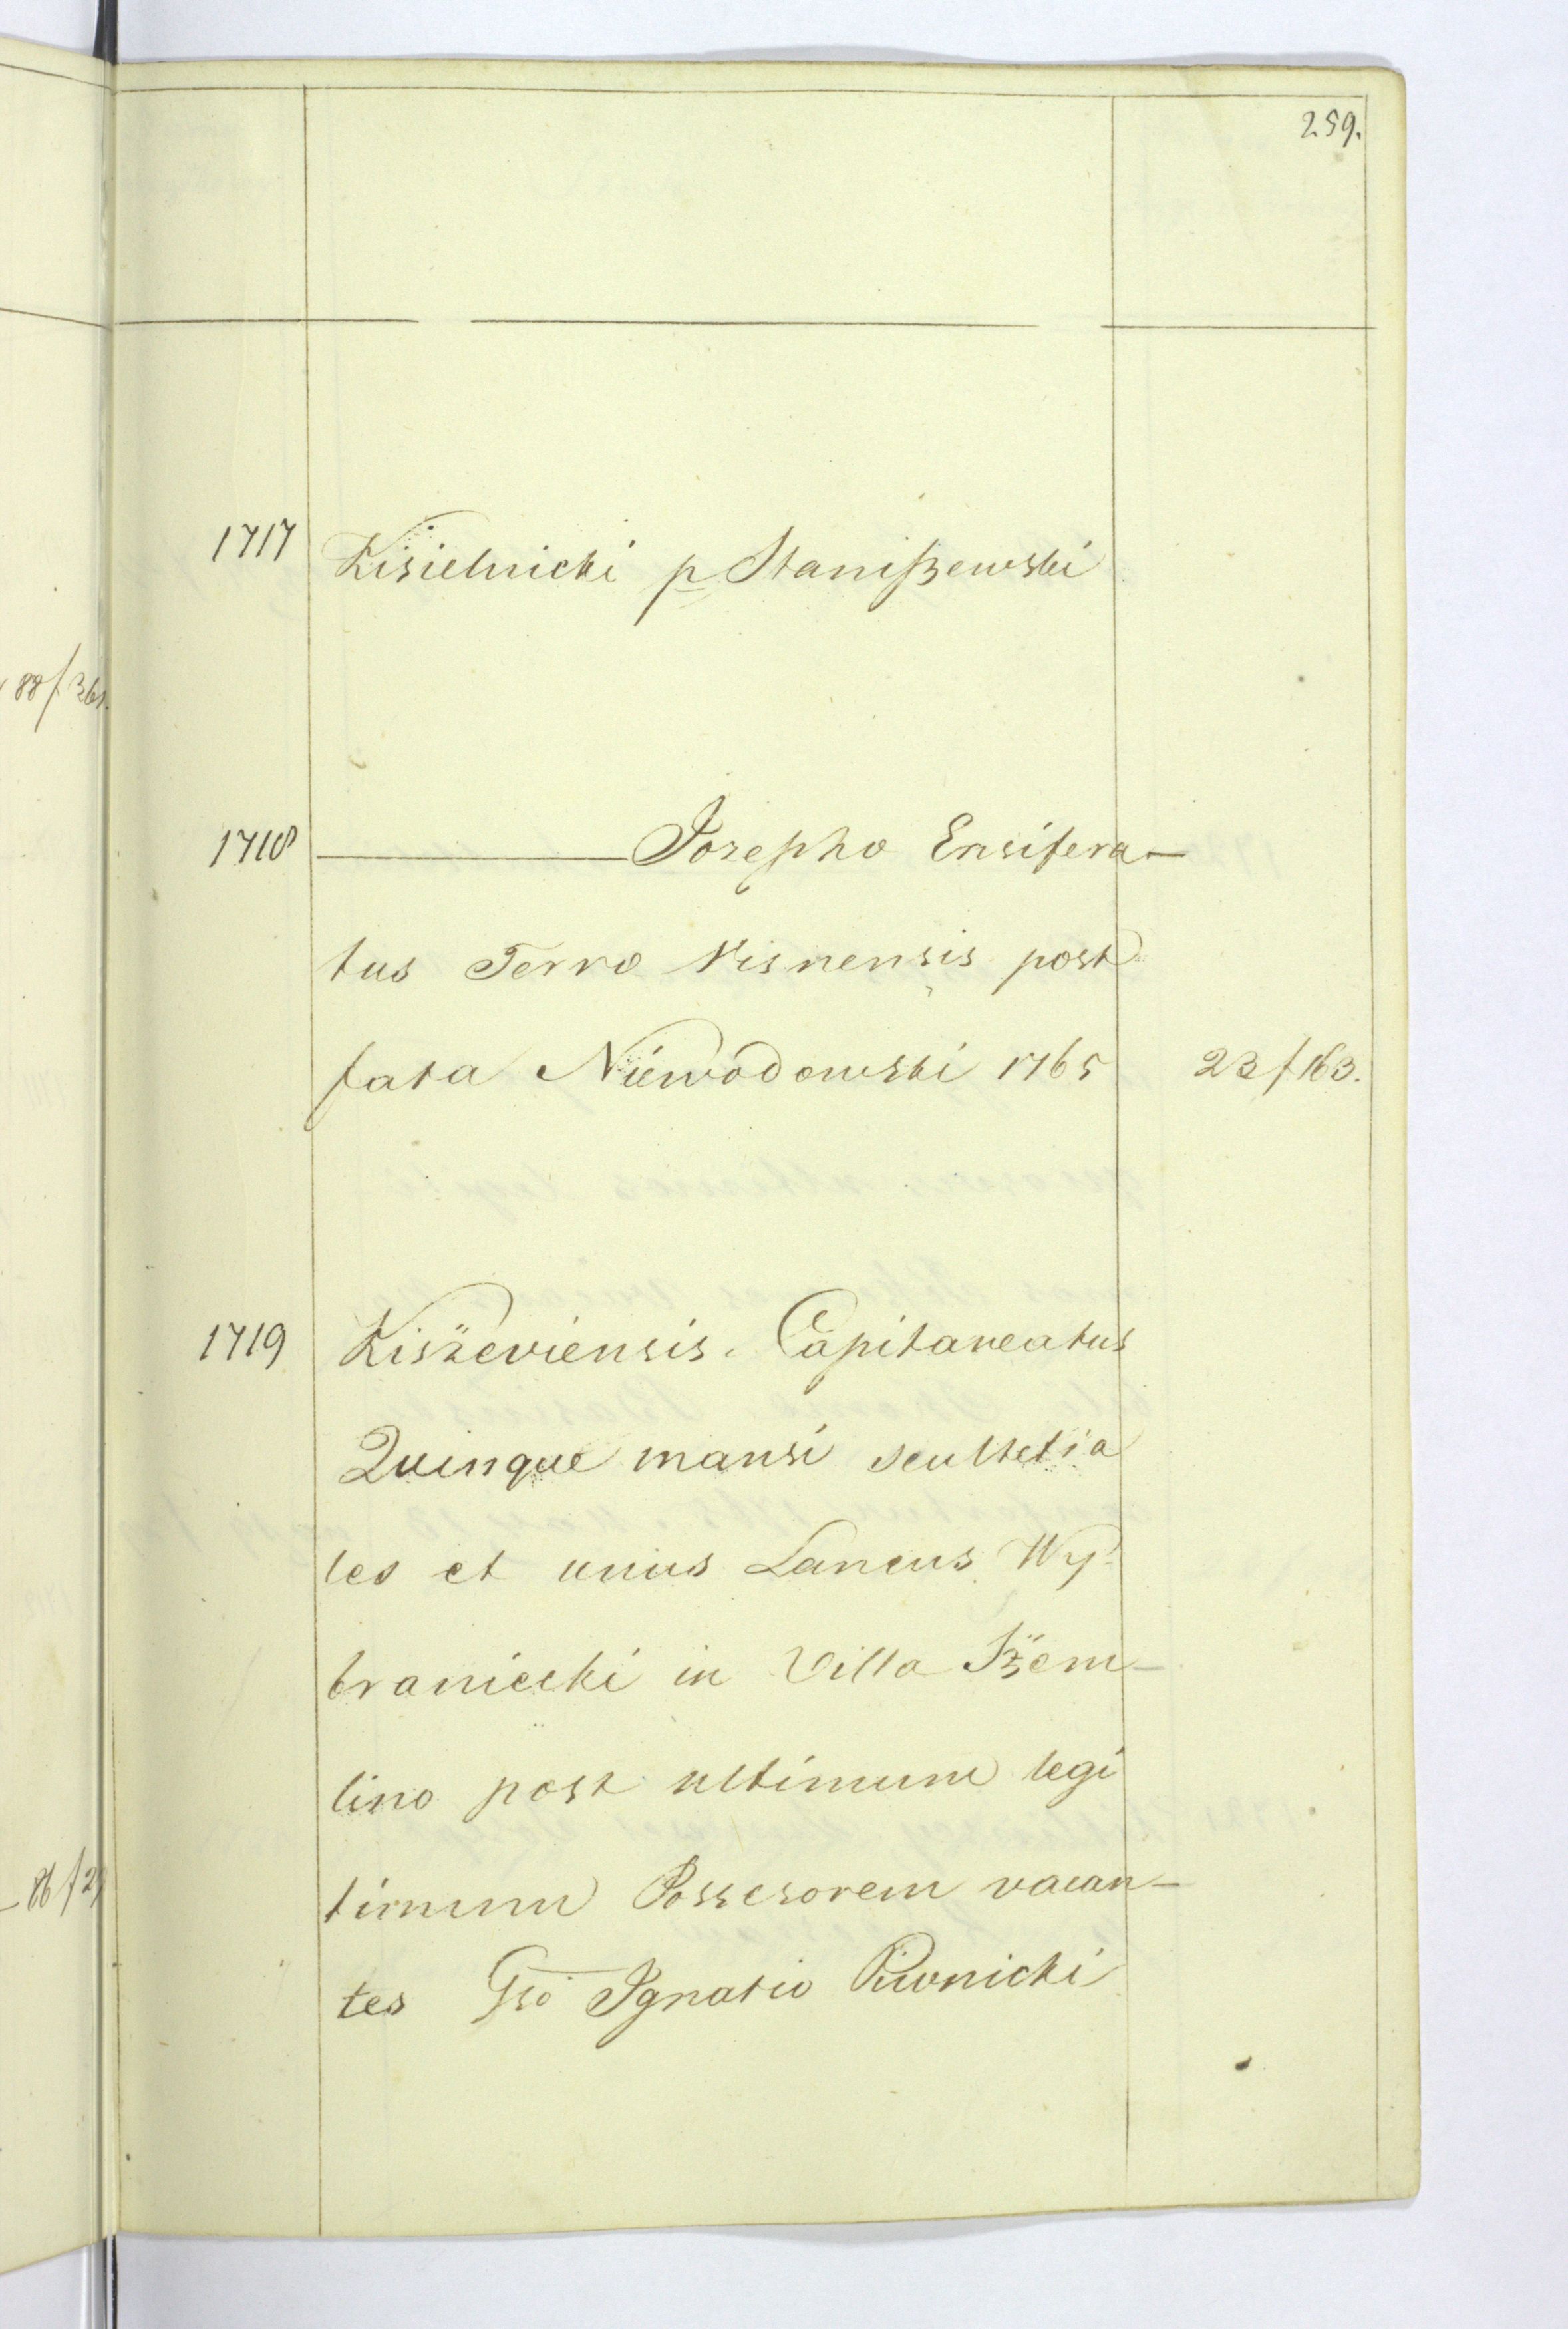 259.
1717 Kisielnicki p Stanißewski
88 f 361.
1718 ———— Josepho Ensifera–
tus Terro Visnensis post
fata Niewodowski 1765 23 f 163.
1719 Kiszeviensis. Capitaneatus
Quinque mansi scultetia
les et unius Laneus Wy-
braniecki in Villa
lino post ultimum legi
timum Possesorem vacan–
86 f 2
tes Gso Ignatio Piwnicki